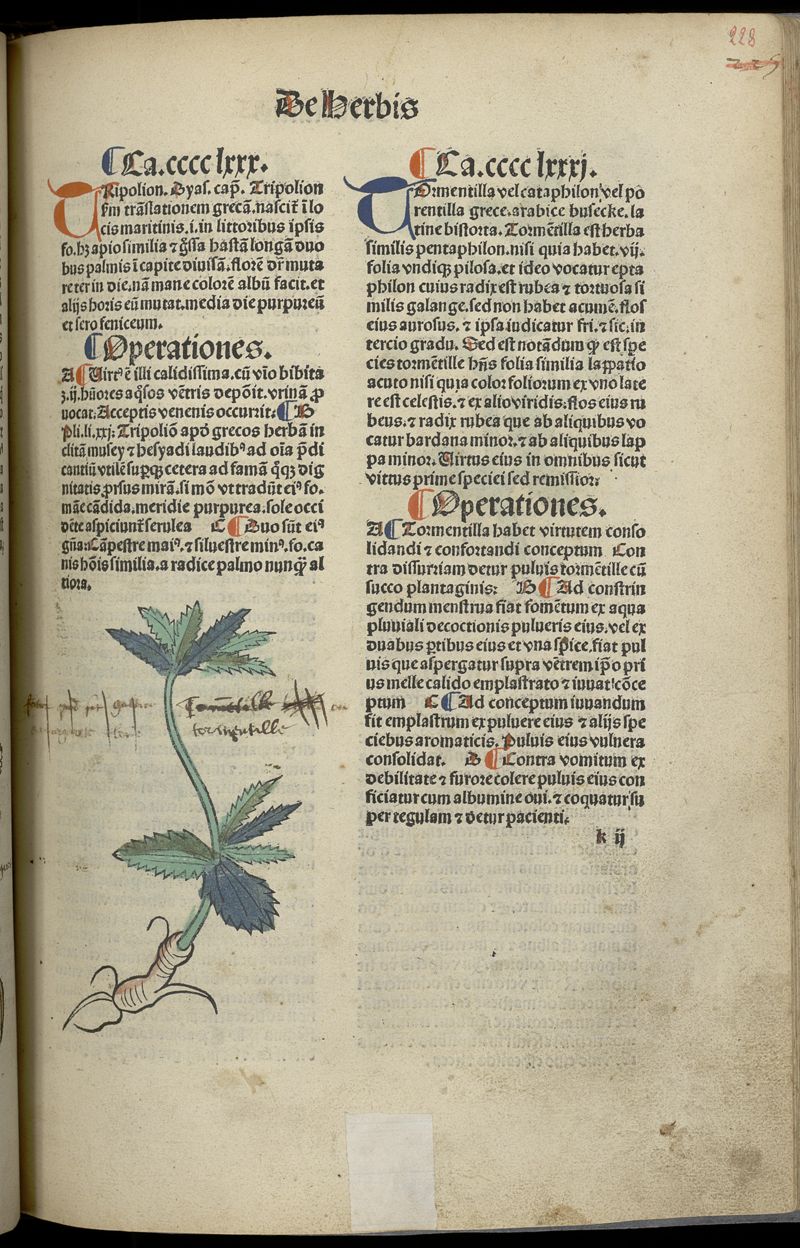 228
De Herbis
¶Ca.cccc lxxx.
TRipolion. Dyas. cap̃. Tripolion
fm trãslationem grecã.nascit̃ ĩ lo
cis maritimis.i.in littoribus ipsis
fo.hʒ apio similia ⁊ hastã longã duo
bus palmis ĩ capite diuisã.florẽ dr̃ muta
re ter in die.nã mane colorẽ albũ facit.et
alijs horis eũ mutat.media die purpureũ
et sero feniceum.
¶Operationes.
A ¶Uirtꝰ ẽ illi calidissima.cũ vĩo bibita
ʒ.ij.hũores aq̃sos vẽtris depõit.vrinã ꝓ
uocat:Acceptis venenis occurrit: ¶B
Pli.li.xxj:Tripoliõ apd̃ grecos herbã in
clitã musey ⁊ hesyodi laudibꝰ ad oĩa p̃di
cantiũ vtilẽ supqꝫ cetera ad famã q̃qꝫ dig
nitatis ꝓrsus mirã.si mõ vt tradũt eiꝰ fo.
mãe cãdida,meridie purpurea.sole occi
dẽte aspiciunt̃ serulea C ¶Duo sũt eiꝰ
gña:Cãpestre maiꝰ.⁊ siluestre minꝰ.fo.ca
nis hõis similia.a radice palmo nunqꝫ al
tiora.
tormentille
¶Ca.cccc lxxxj.
TOrmentilla vel cataphilon vel põ
rentilla grece.arabice busecke.la
tine bistorta.Tormẽtilla est herba
similis pentaphilon.nisi quia habet.vij.
folia vndiqꝫ pilosa.et ideo vocatur epta
philon cuius radix est rubea ⁊ tortuosa si
milis galange.sed non habet acumẽ.flos
eius aurosus.⁊ ipsa iudicatur fri.⁊ sic.in
tercio gradu. Sed est notãdum ꝙ est spe
cies tormẽtille hñs folia similia lappatio
acuto nisi quia color foliorum ex vno late
re est celestis.⁊ ex alio viridis:flos eius ru
beus.⁊ radix rubea que ab aliquibus vo
catur bardana minor.⁊ ab aliquibus lap
pa minor.Uirtus eius in omnibus sicut
virtus prime speciei sed remissior:
¶Operationes.
A ¶Tormentilla habet virtutem conso
lidandi ⁊ confortandi conceptum Con
tra dissuriam detur puluis tormẽtille cũ
succo plantaginis: B ¶Ad constrin
gendum menstrua fiat fomẽtum ex aqua
pluuiali decoctionis pulueris eius.vel ex
duabus ꝑtibus eius et vna spice.fiat pul
uis que aspergatur supra vẽtrem ip̃o pri
us melle calido emplastrato ⁊ iuuat cõce
ptum C ¶Ad conceptum iuuandum
fit emplastrum ex puluere eius ⁊ alijs spe
ciebus aromaticis.Puluis eius vulnera
consolidat. D ¶Contra vomitum ex
debilitate ⁊ furore colere puluis eius con
ficiatur cum albumine oui.⁊ coquatur su
per tegulam ⁊ detur pacienti.
k ij